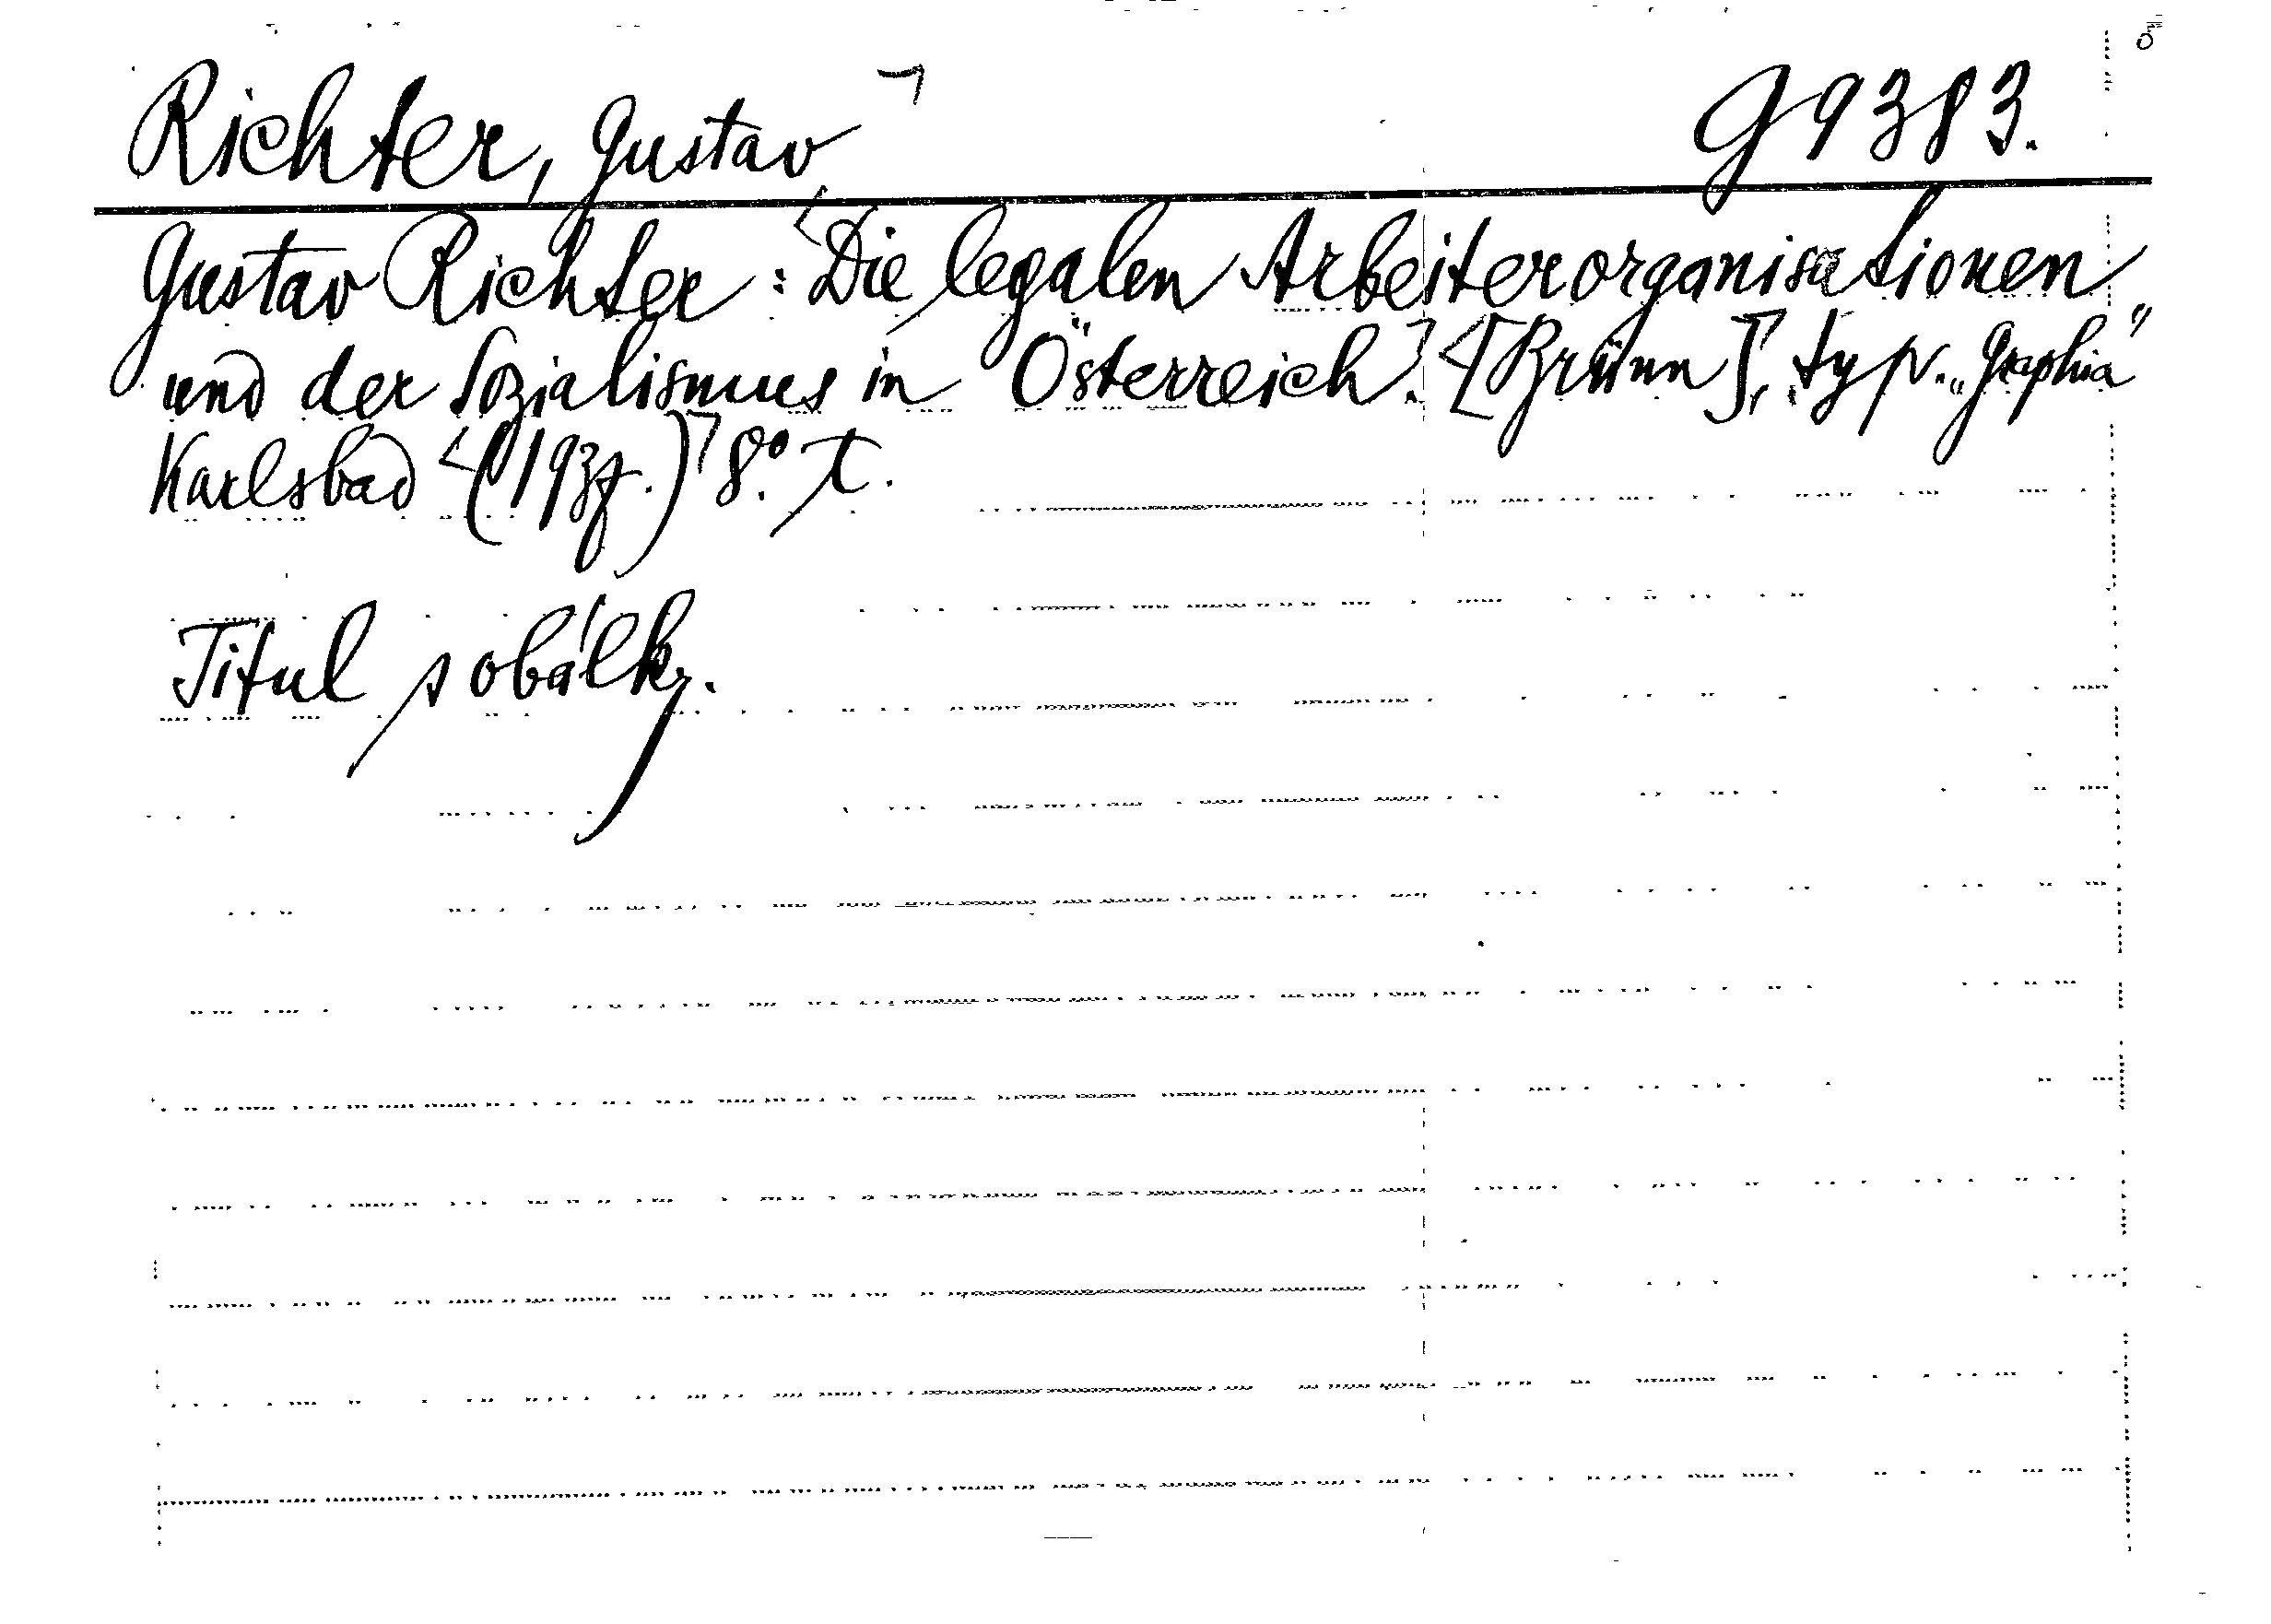 Richter, Gustav ⌝ G 9383.
Gustav Richter: <Die legalen Arbeiterorganisationen
und der Sozialismus in Österreich.⌝ <[Brünn]⌝, typ. „Graphia“
Karlsbad <(193?.)⌝ 8°. T.
Titul s obálky.